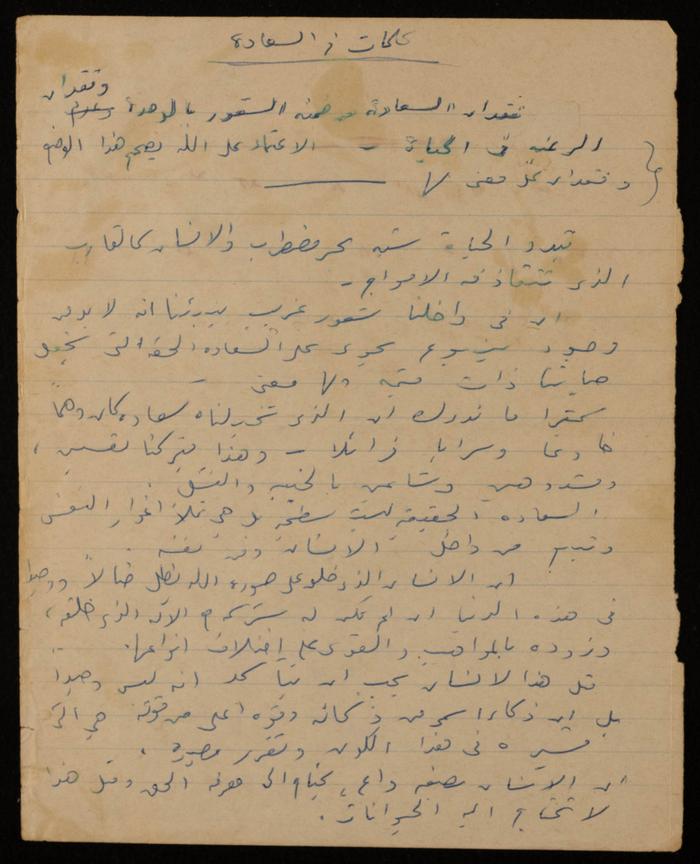 كلمات في السعادة
وفقدان
فقدان السعادة من الشعور بالوحدة
الرغبة في الحياة - الاعتماد على الله يصحح هذا الوضع
وفقدان كل معنى لها
تبدو الحياة شبه بحر مضطرب والانسان كالقارب
الذي تتقاذفه الامواج -
ان في داخلنا شعور غريب ينبئنا انه لا بد من
وجود ينبوع يحوي على السعادة الحقة التي تجعل
حياتنا ذات قيمة ولها معنى -
كثيرا ما ندرك ان الذي سعادة كان وهما
خادعا وسرابا زائلا - وهذا يتركنا تعسين،
بالخيبة والفشل.
السعادة الحقيقية ليست سطحية بل هي تملأ اغوار النفس
وتنبع من داخل الانسان وفي نفسه.
ان الانسان الذي خلق على صورة الله يظل ضالاً ووحيدا
في هذه الدنيا ان لم تكن له شركة مع الاله الذي خلقه،
وزوده بالمواهب والقوى على اختلاف انواعها.
مثل هذا الانسان يجب ان يتأكد انه ليس وحيدا
بل ان ذكاء اسمى من ذكائه وقوة اعلى من قوته هي التي
في هذا الكون وتقرر مصيره.
ان الانسان بصفته واع يحتاج الى معرفة الحق ومثل هذا
لا تحتاج اليه الحيوانات.